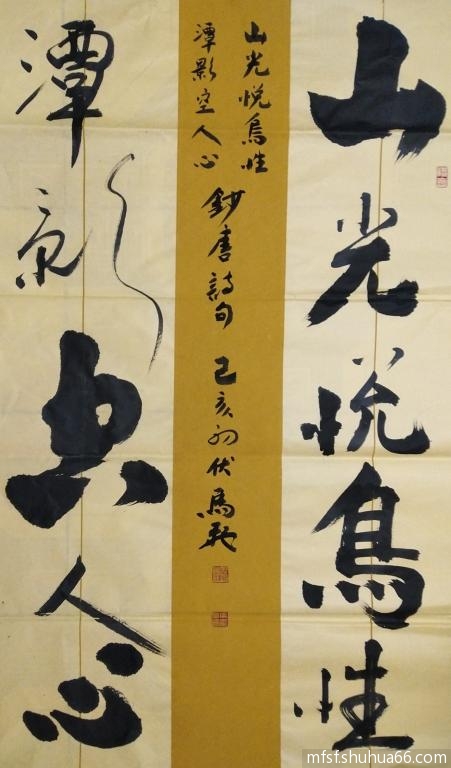 山光悦鳥性
潭影空人心
山光悦鳥性
潭影空人心
鈔唐詩句 己亥初伏馬馳
mfsfshuhua66.com